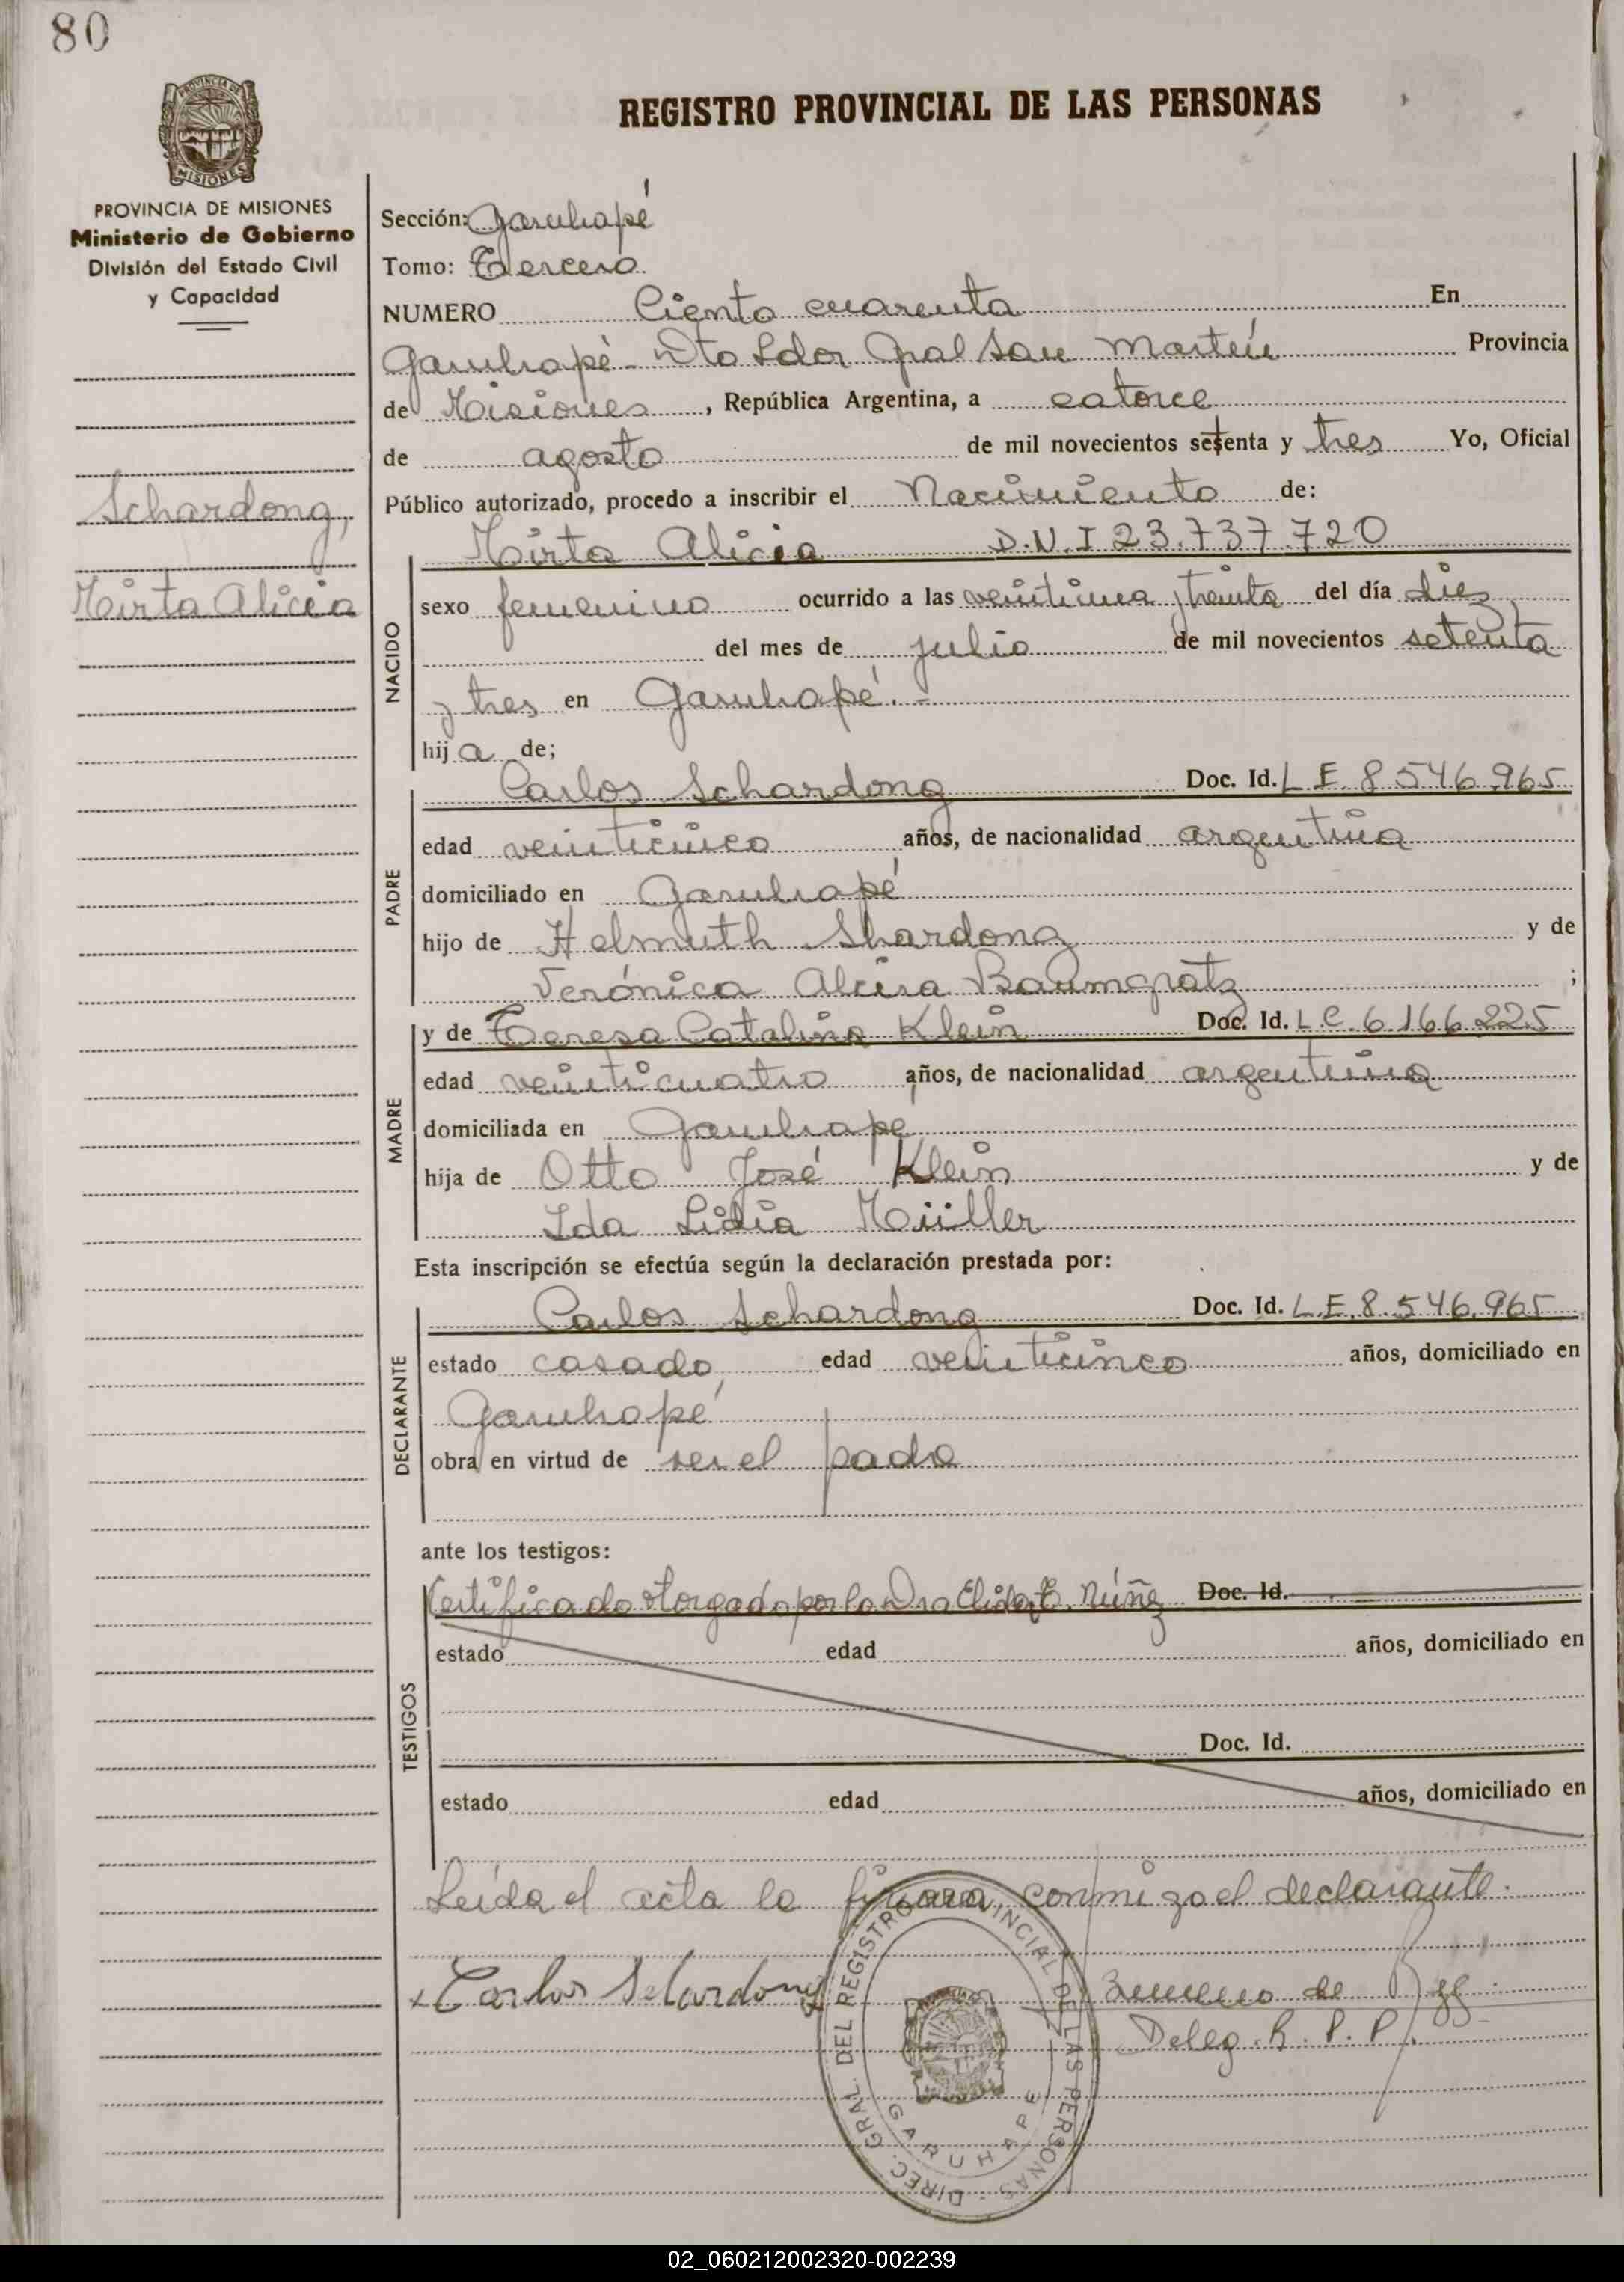 80
PROVINCIA DE
MISIONES
REGISTRO PROVINCIAL DE LAS PERSONAS
PROVINCIA DE MISIONES
Ministerio de Gobierno
División del Estado Civil
y Capacidad
Schardong,
Mirta Alicia
Sección: Garuhapé
Tomo: Tercero
NUMERO Ciento cuarenta En
Garuhapé - Dto Ldor Gral San Martín Provincia
de Misiones, República Argentina, a catorce
de agosto de mil novecientos setenta y tres Yo, Oficial
Público autorizado, procedo a inscribir el Nacimiento de:
Mirta Alicia D.N.I 23.737.720
NACIDO
sexo femenino ocurrido a las veintiuna y treinta del día diez
del mes de julio de mil novecientos setenta
y tres en Garuhapé.-
hija de;
PADRE
Carlos Schardong Doc. Id. L E 8.546.965
edad veinticinco años, de nacionalidad argentina
domiciliado en Garuhapé
hijo de Helmuth Shardong y de
Verónica Alcira Baumgratz ;
MADRE
y de Teresa Catalina Klein Doc. Id. L.C. 6.166.225
edad veinticuatro años, de nacionalidad argentina
domiciliada en Garuhapé
hija de Otto José Klein y de
Ida Lidia Müller
Esta inscripción se efectúa según la declaración prestada por:
DECLARANTE
Carlos Schardong Doc. Id. L.E. 8.546.965
estado casado, edad veinticinco años, domiciliado en
Garuhapé
obra en virtud de ser el padre
ante los testigos:
TESTIGOS
Certificado otorgado por la Dra Núñez Doc. Id.
estado edad años, domiciliado en
Doc. Id.
estado edad años, domiciliado en
Leída el acta la firmara conmigo el declarante.
Carlos Schardong
de
Deleg. R. P. P.
DIREC. GRAL. DEL REGISTRO PROVINCIAL DE LAS PERSONAS
GARUHAPE
02_060212002320-002239